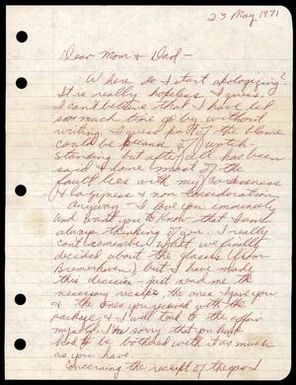 23 May 1971
Dear Mom & Dad –
Where do I start apologizing?
It's really hopeless I guess.
I can't believe that I have let
so much time go by without
writing. I guess part of the blame
could be because of watch
standing but after all has been
said & done most of the
fault lies with my
& laziness & non consideration.
Anyway – I love you immensely
and want you to know that I am
always thinking of you. I really
can't remember what we finally
decided about the glasses (from
Bremerhaven) but I have made
this decision – just send me the
necessary receipts, the ones I gave you
& the ones you received with the
package & I will tend to the affair
myself. I'm sorry that you have
had to be bothered with it as much
as you have.
Concerning the receipt of the good